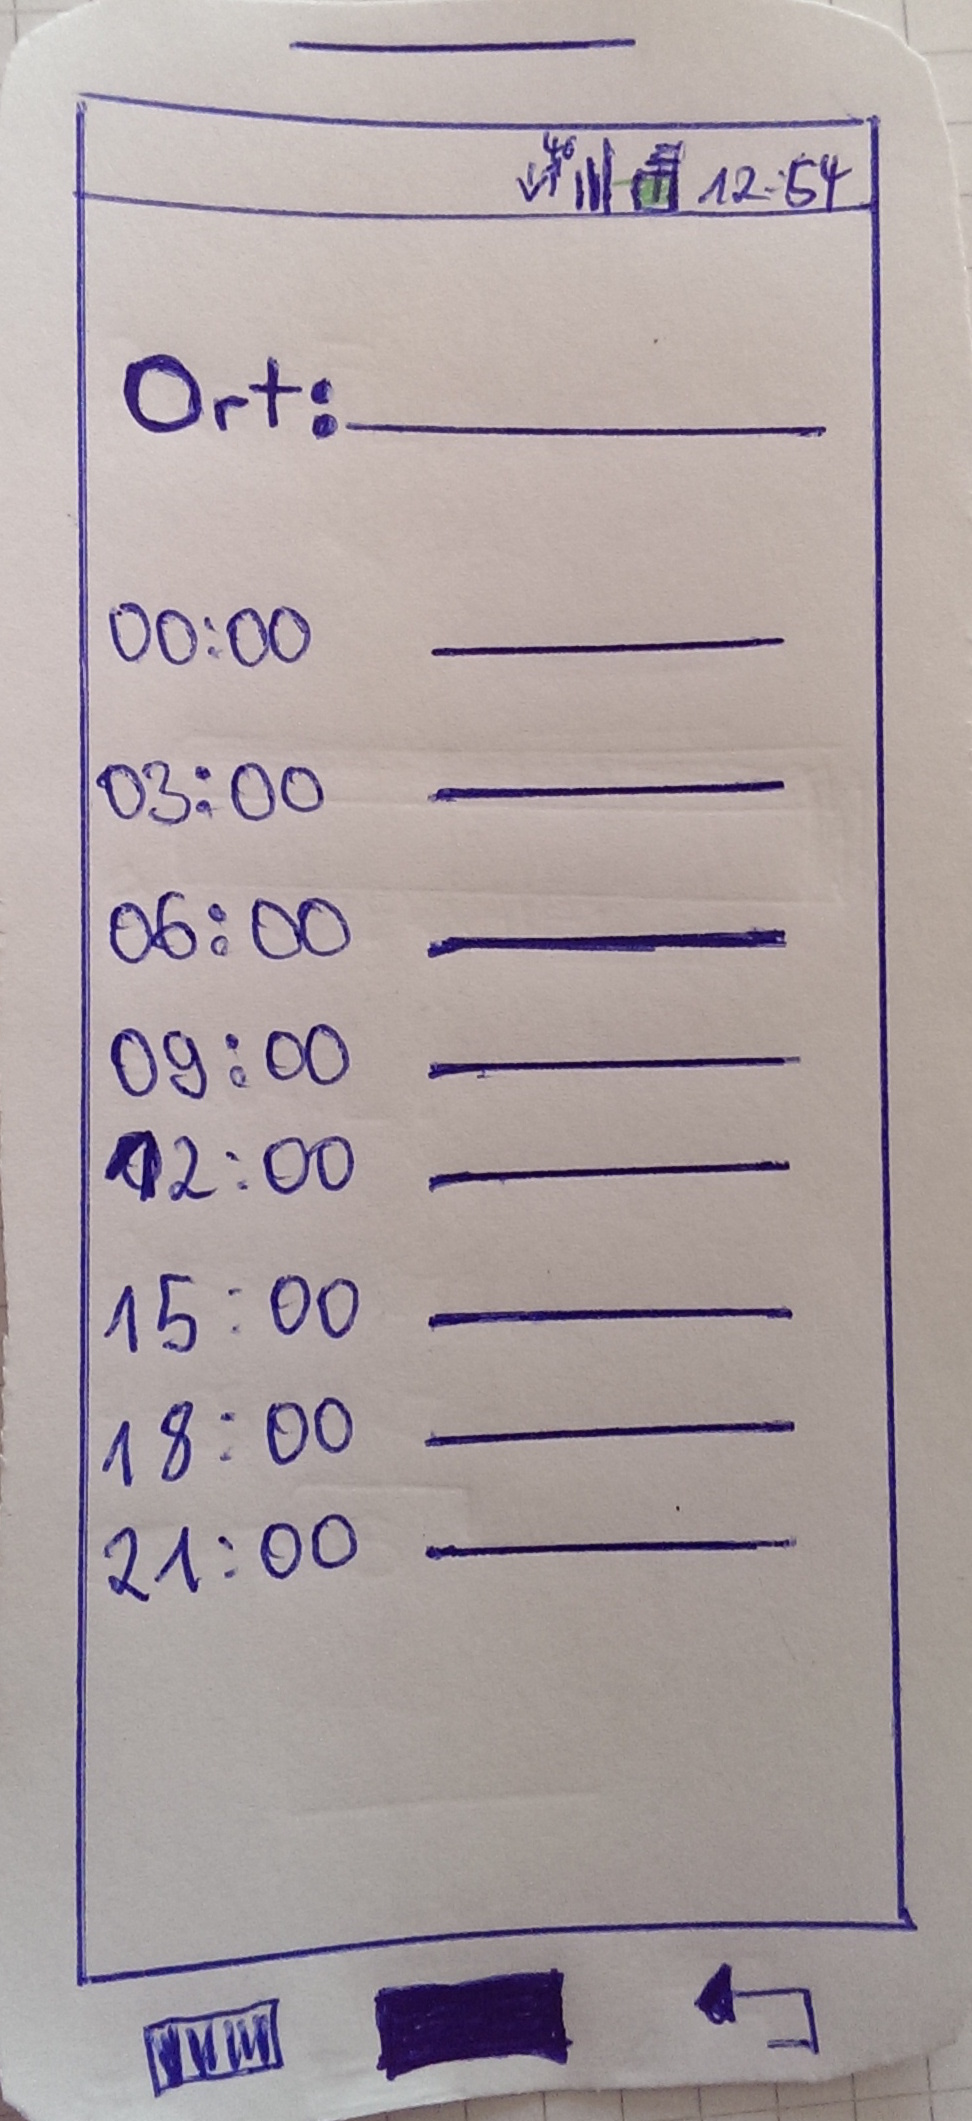 4G 12:54
Ort:
00:00
03:00
06:00
09:00
12:00
15:00
18:00
21:00